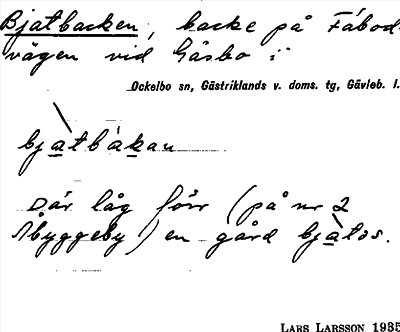 Bjatbacken, backe på Fäbod-
vägen vid Gåsbo i
Ockelbo sn, Gästriklands v. doms. tg, Gävleb. l.
bjàtbakan
Där låg förr (på nr 2
Åbyggeby) en gård bjàtos.
LARS LARSSON 1935